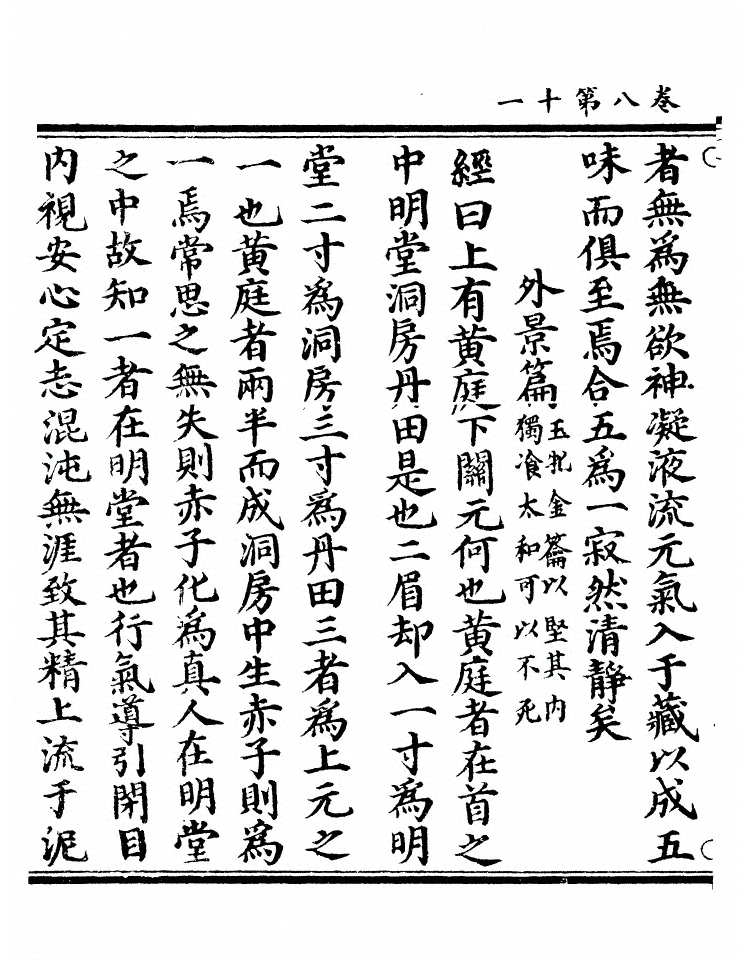 卷八第十一
者無為無欲神凝液流元氣入于藏以成五
味而俱至焉合五為一寂然清靜矣
外景篇
玉牝金籥以堅其内
獨飡太和可以不死
經曰上有黄庭下關元何也黄庭者在首之
中明堂洞房丹田是也二眉却入一寸為明
堂二寸為洞房三寸為丹田三者為上元之
一也黄庭者兩半而成洞房中生赤子則為
一焉常思之無失則赤子化為真人在明堂
之中故知一者在明堂者也行氣導引閉目
内視安心定志混沌無涯致其精上流于泥